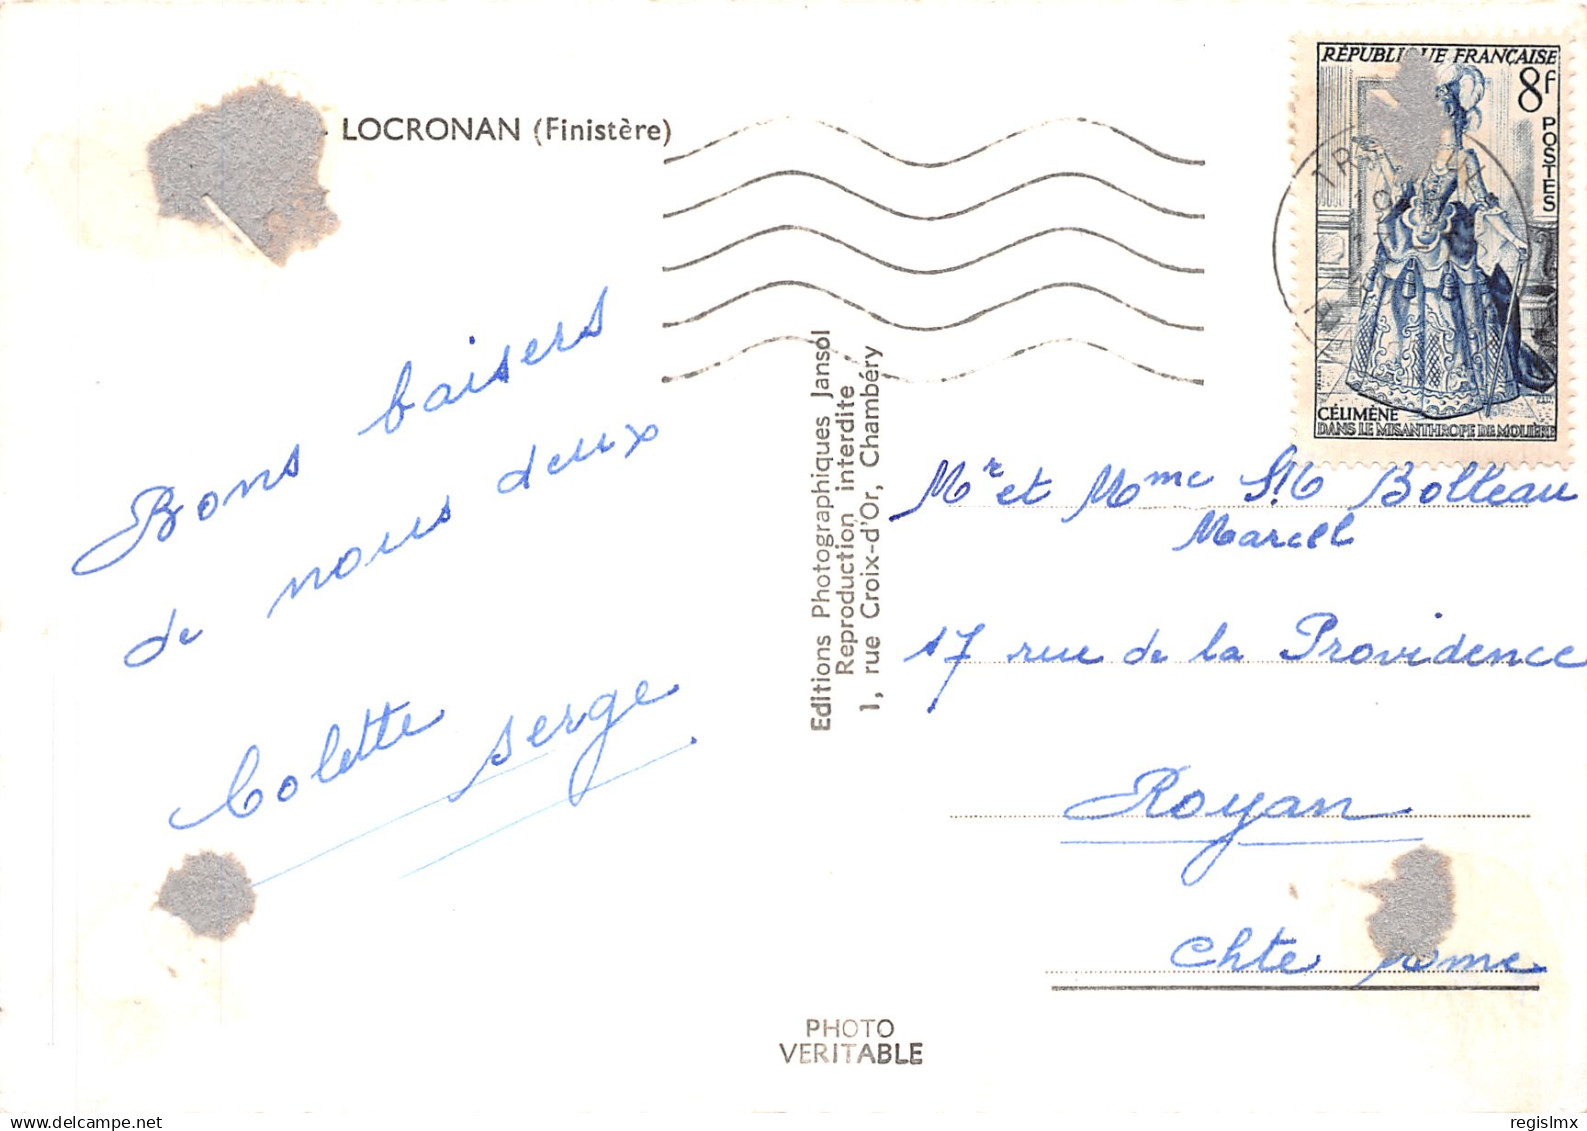 LOCRONAN (Finistère)
Bons baisers
de nous deux
Colette Serge
Editions Photographiques Jansol
Reproduction interdite
1, rue Croix-d'Or, Chambéry
RÉPUBLIQUE FRANÇAISE
8f
POSTES
CÉLIMÈNE
DANS LE MISANTHROPE DE MOLIÈRE
Mr et Mme Bolteau
Marcel
17 rue de la Providence
Royan
Chte
PHOTO
VERITABLE
Delcampe.net
regislmx